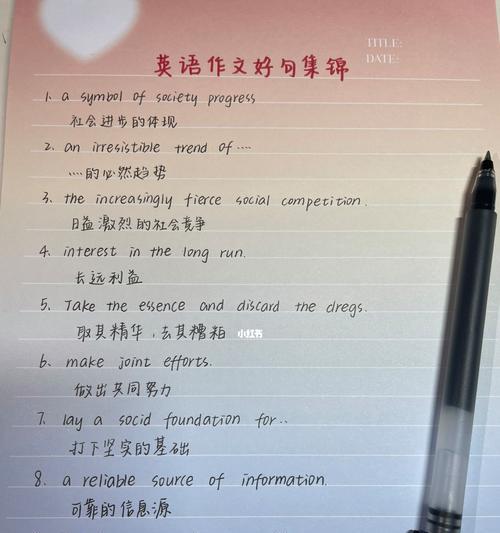 英语作文好句集锦
TITLE:
DATE:
1. a symbol of society progress
社会进步的体现
2. an irresistible trend of····
····的必然趋势
3. the increasingly fierce social competition.
日益激烈的社会竞争
4. interest in the long run.
长远利益
5. Take the essence and discard the dregs.
取其精华,去其糟粕
小红书
6. make joint efforts.
做出共同努力
7. lay a socid foundation for··
打下坚实的基础
8. a reliable source of information.
可靠的信息源